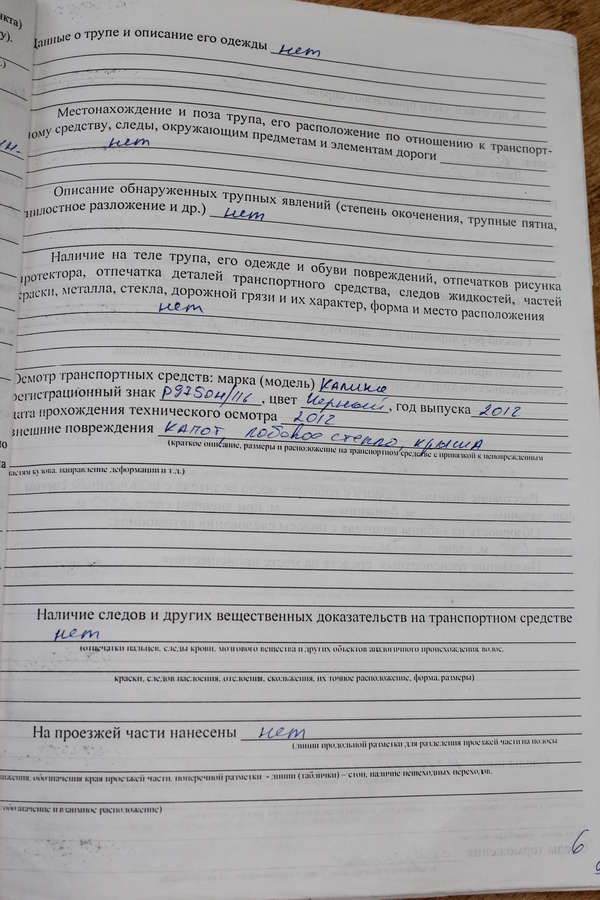 кта)
у).
Данные о трупе и описание его одежды нет
Местонахождение и поза трупа, его расположение по отношению к транспорт-
ному средству, следы, окружающим предметам и элементам дороги
нет
Описание обнаруженных трупных явлений (степень окоченения, трупные пятна,
гнилостное разложение и др.) нет
Наличие на теле трупа, его одежде и обуви повреждений, отпечатков рисунка
протектора, отпечатка деталей транспортного средства, следов жидкостей, частей
краски, металла, стекла, дорожной грязи и их характер, форма и место расположения
нет
Осмотр транспортных средств: марка (модель) Калина
регистрационный знак Р975ОН/116, цвет Черный, год выпуска 2012
дата прохождения технического осмотра 2012
внешние повреждения капот, лобовое стекло, крыша
(краткое описание, размеры и расположение на транспортном средстве с привязкой к неповрежденным
частям кузова, направление деформации и т.д.)
Наличие следов и других вещественных доказательств на транспортном средстве
нет
(отпечатки пальцев, следы крови, мозгового вещества и других объектов аналогичного происхождения, волос,
краски, следов наслоения, отслоения, скольжения, их точное расположение, форма, размеры)
На проезжей части нанесены нет
(линии продольной разметки для разделения проезжей части на полосы
движения, обозначения края проезжей части, поперечной разметки - линии (таблички) – стоп, наличие пешеходных переходов,
обозначение и взаимное расположение)
6